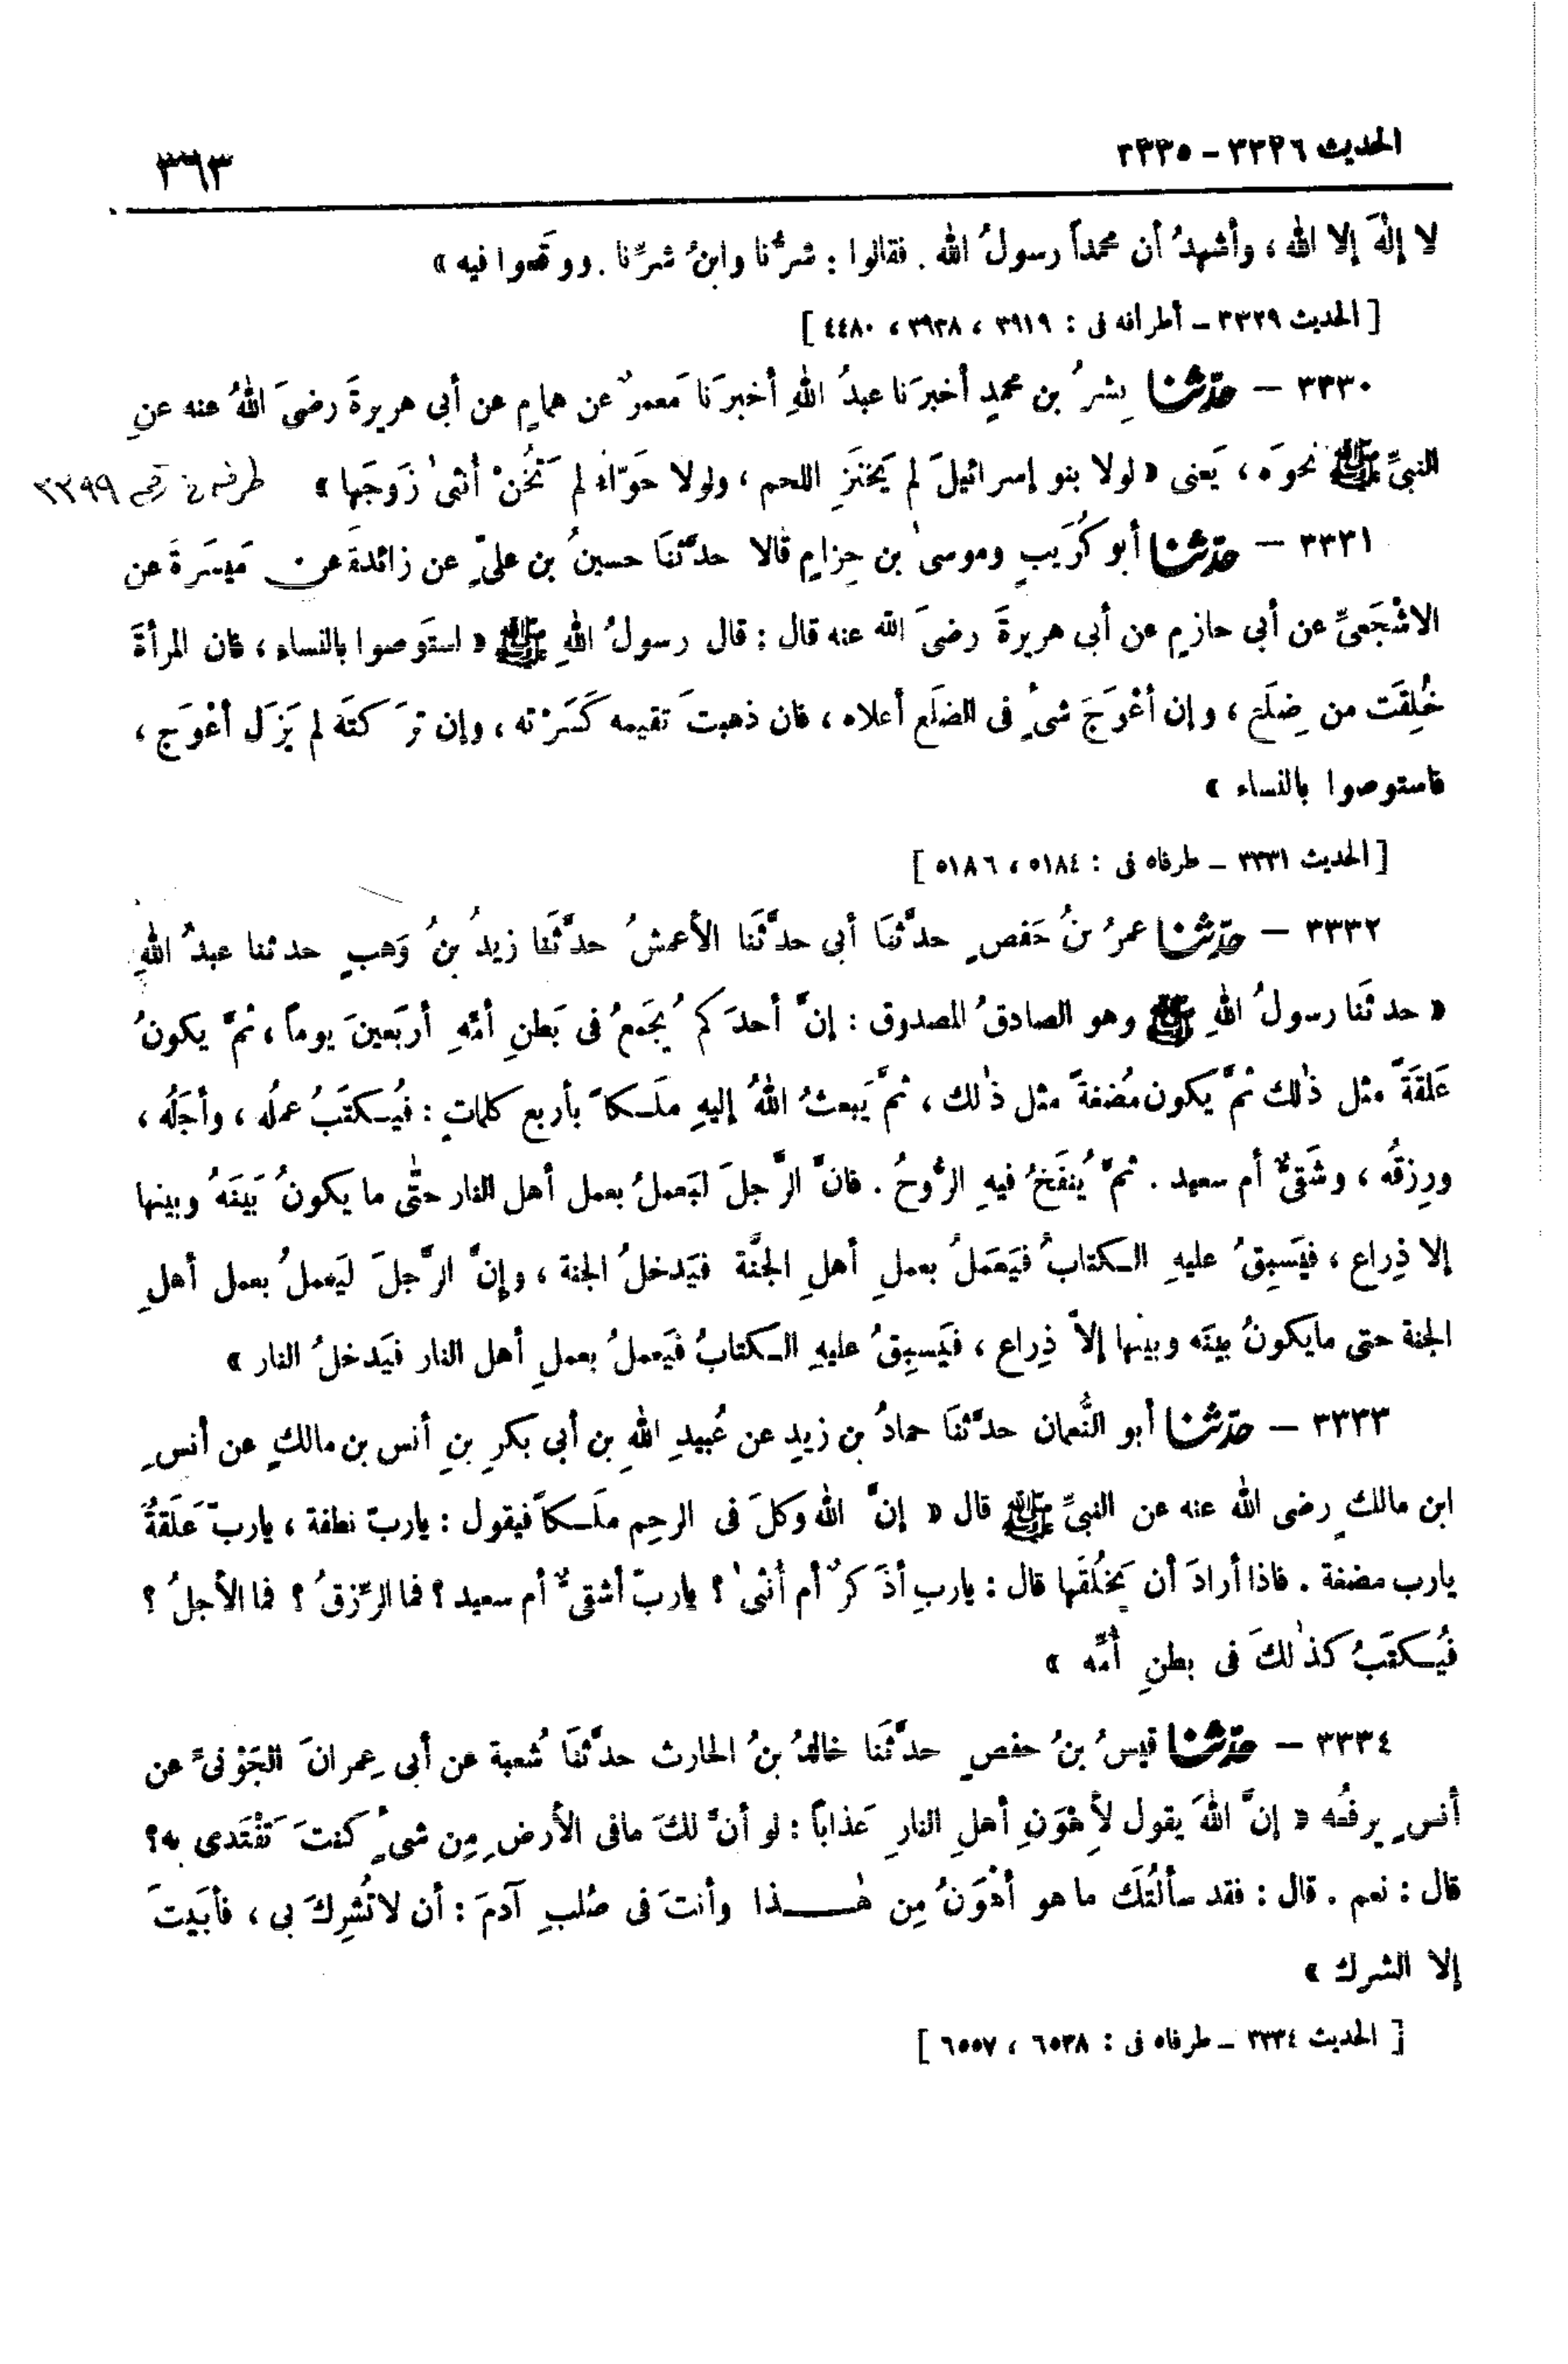 الحديث ٣٣٢٦ – ٣٣٣٥
٣٦٣
لا إلهَ إلا الله، وأشهدُ أن محمداً رسولُ الله. فقالوا: شرُّنا وابنُ شرِّنا. ووقعوا فيه»
[الحديث ٣٣٢٩ – أطرافه فى: ٣٩١١، ٣٩٣٨، ٤٤٨٠]
٣٣٣٠ – حدّثنا بِشرُ بن محمدٍ أخبرَنا عبدُ اللهِ أخبرَنا مَعمرٌ عن همامٍ عن أبى هريرةَ رضىَ اللهُ عنه عنِ
النبىِّ ﷺ نحوَه، يَعنى «لولا بنو إسرائيلَ لم يَخنَزِ اللحم، ولولا حَوّاءُ لم تَخُنْ أنثىٰ زَوجَها» طرفه في رقم ٣٣٩٩
٣٣٣١ – حدّثنا أبو كُرَيبٍ وموسىٰ بن حِزامٍ قالا حدَّثنَا حسينُ بن علىٍّ عن زائدةَ عن مَيسَرةَ عن
الاشْجَعىِّ عن أبى حازمٍ عن أبى هريرةَ رضىَ الله عنه قال: قال رسولُ اللهِ ﷺ «استَوصوا بالنساء، فان المرأةَ
خُلِقَت من ضِلَع، وإن أعْوَجَ شىءٍ فى الضلَع أعلاه، فان ذهبتَ تقيمه كَسَرْته، وإن ترَكتَه لم يَزَل أعْوَج،
فاستوصوا بالنساء»
[الحديث ٣٣٣١ – طرفاه فى: ٥١٨٤، ٥١٨٦]
٣٣٣٢ – حدّثنا عمرُ بنُ حَفصٍ حدَّثَنا أبى حدَّثَنا الأعمشُ حدَّثَنا زيدُ بنُ وَهبٍ حدثنا عبدُ اللهِ
«حدثَنا رسولُ اللهِ ﷺ وهو الصادقُ المصدوق: إنَّ أحدَكم يُجمَعُ فى بَطنِ أمِّهِ أربَعينَ يوماً، ثمَّ يكونُ
عَلقَةً مثل ذٰلك ثمَّ يكون مُضغةً مثل ذٰلك، ثمَّ يَبعثُ اللهُ إليهِ ملَـكاً بأربع كلماتٍ: فيُـكتَبُ عملُه، وأجَلُه،
ورِزقُه، وشَقىٌّ أم سعيد. ثمَّ يُنفَخُ فيهِ الرُّوحُ. فانَّ الرَّجلَ ليَعملُ بعمل أهل النار حتَّى ما يكونُ بَينَهُ وبينها
إلا ذِراع، فيَسبِقُ عليهِ الـكتابُ فيَعمَلُ بعملِ أهلِ الجنَّة فيَدخلُ الجنة، وإنَّ الرَّجلَ ليَعملُ بعمل أهلِ
الجنة حتى مايكونُ بينَه وبينها إلاَّ ذِراع، فيَسبِقُ عليهِ الـكتابُ فيَعملُ بعملِ أهل النار فيَدخلُ النار»
٣٣٣٣ – حدّثنا أبو النُّعمان حدَّثنَا حمادُ بن زيدٍ عن عُبيدِ اللهِ بن أبى بكرِ بنِ أنس بن مالكٍ عن أنسِ
ابن مالكٍ رضى الله عنه عن النبىِّ ﷺ قال «إنَّ الله وَكلَ فى الرحِم ملَـكاً فيقول: يارب نطفة، ياربّ عَلَقةٌ
يارب مضغة. فاذا أرادَ أن يَخلُقَها قال: ياربِ أذَكرٌ أم أنثىٰ؟ ياربّ أشقىٌّ أم سعيد؟ فما الرِّزقُ؟ فما الأجلُ؟
فيُـكتَبُ كذٰلكَ فى بطنِ أُمِّه»
٣٣٣٤ – حدّثنا قيسُ بنُ حفصٍ حدَّثَنا خالدُ بنُ الحارث حدَّثَنَا شُعبة عن أبى عِمرانَ الجَوْنىِّ عن
أنسٍ يرفعُه «إنَّ اللهَ يقول لأهْوَنِ أهلِ النارِ عَذاباً: لو أنَّ لكَ مافى الأرضِ مِن شىءٍ كنتَ تَفْتَدى به؟
قال: نعم. قال: فقد سألتُكَ ما هو أهْوَنُ مِن هٰـــــذا وأنتَ فى صُلبِ آدمَ: أن لاتُشرِكَ بى، فأبَيتَ
إلا الشرك»
[الحديث ٣٣٣٤ – طرفاه فى: ٦٥٣٨، ٦٥٥٧]